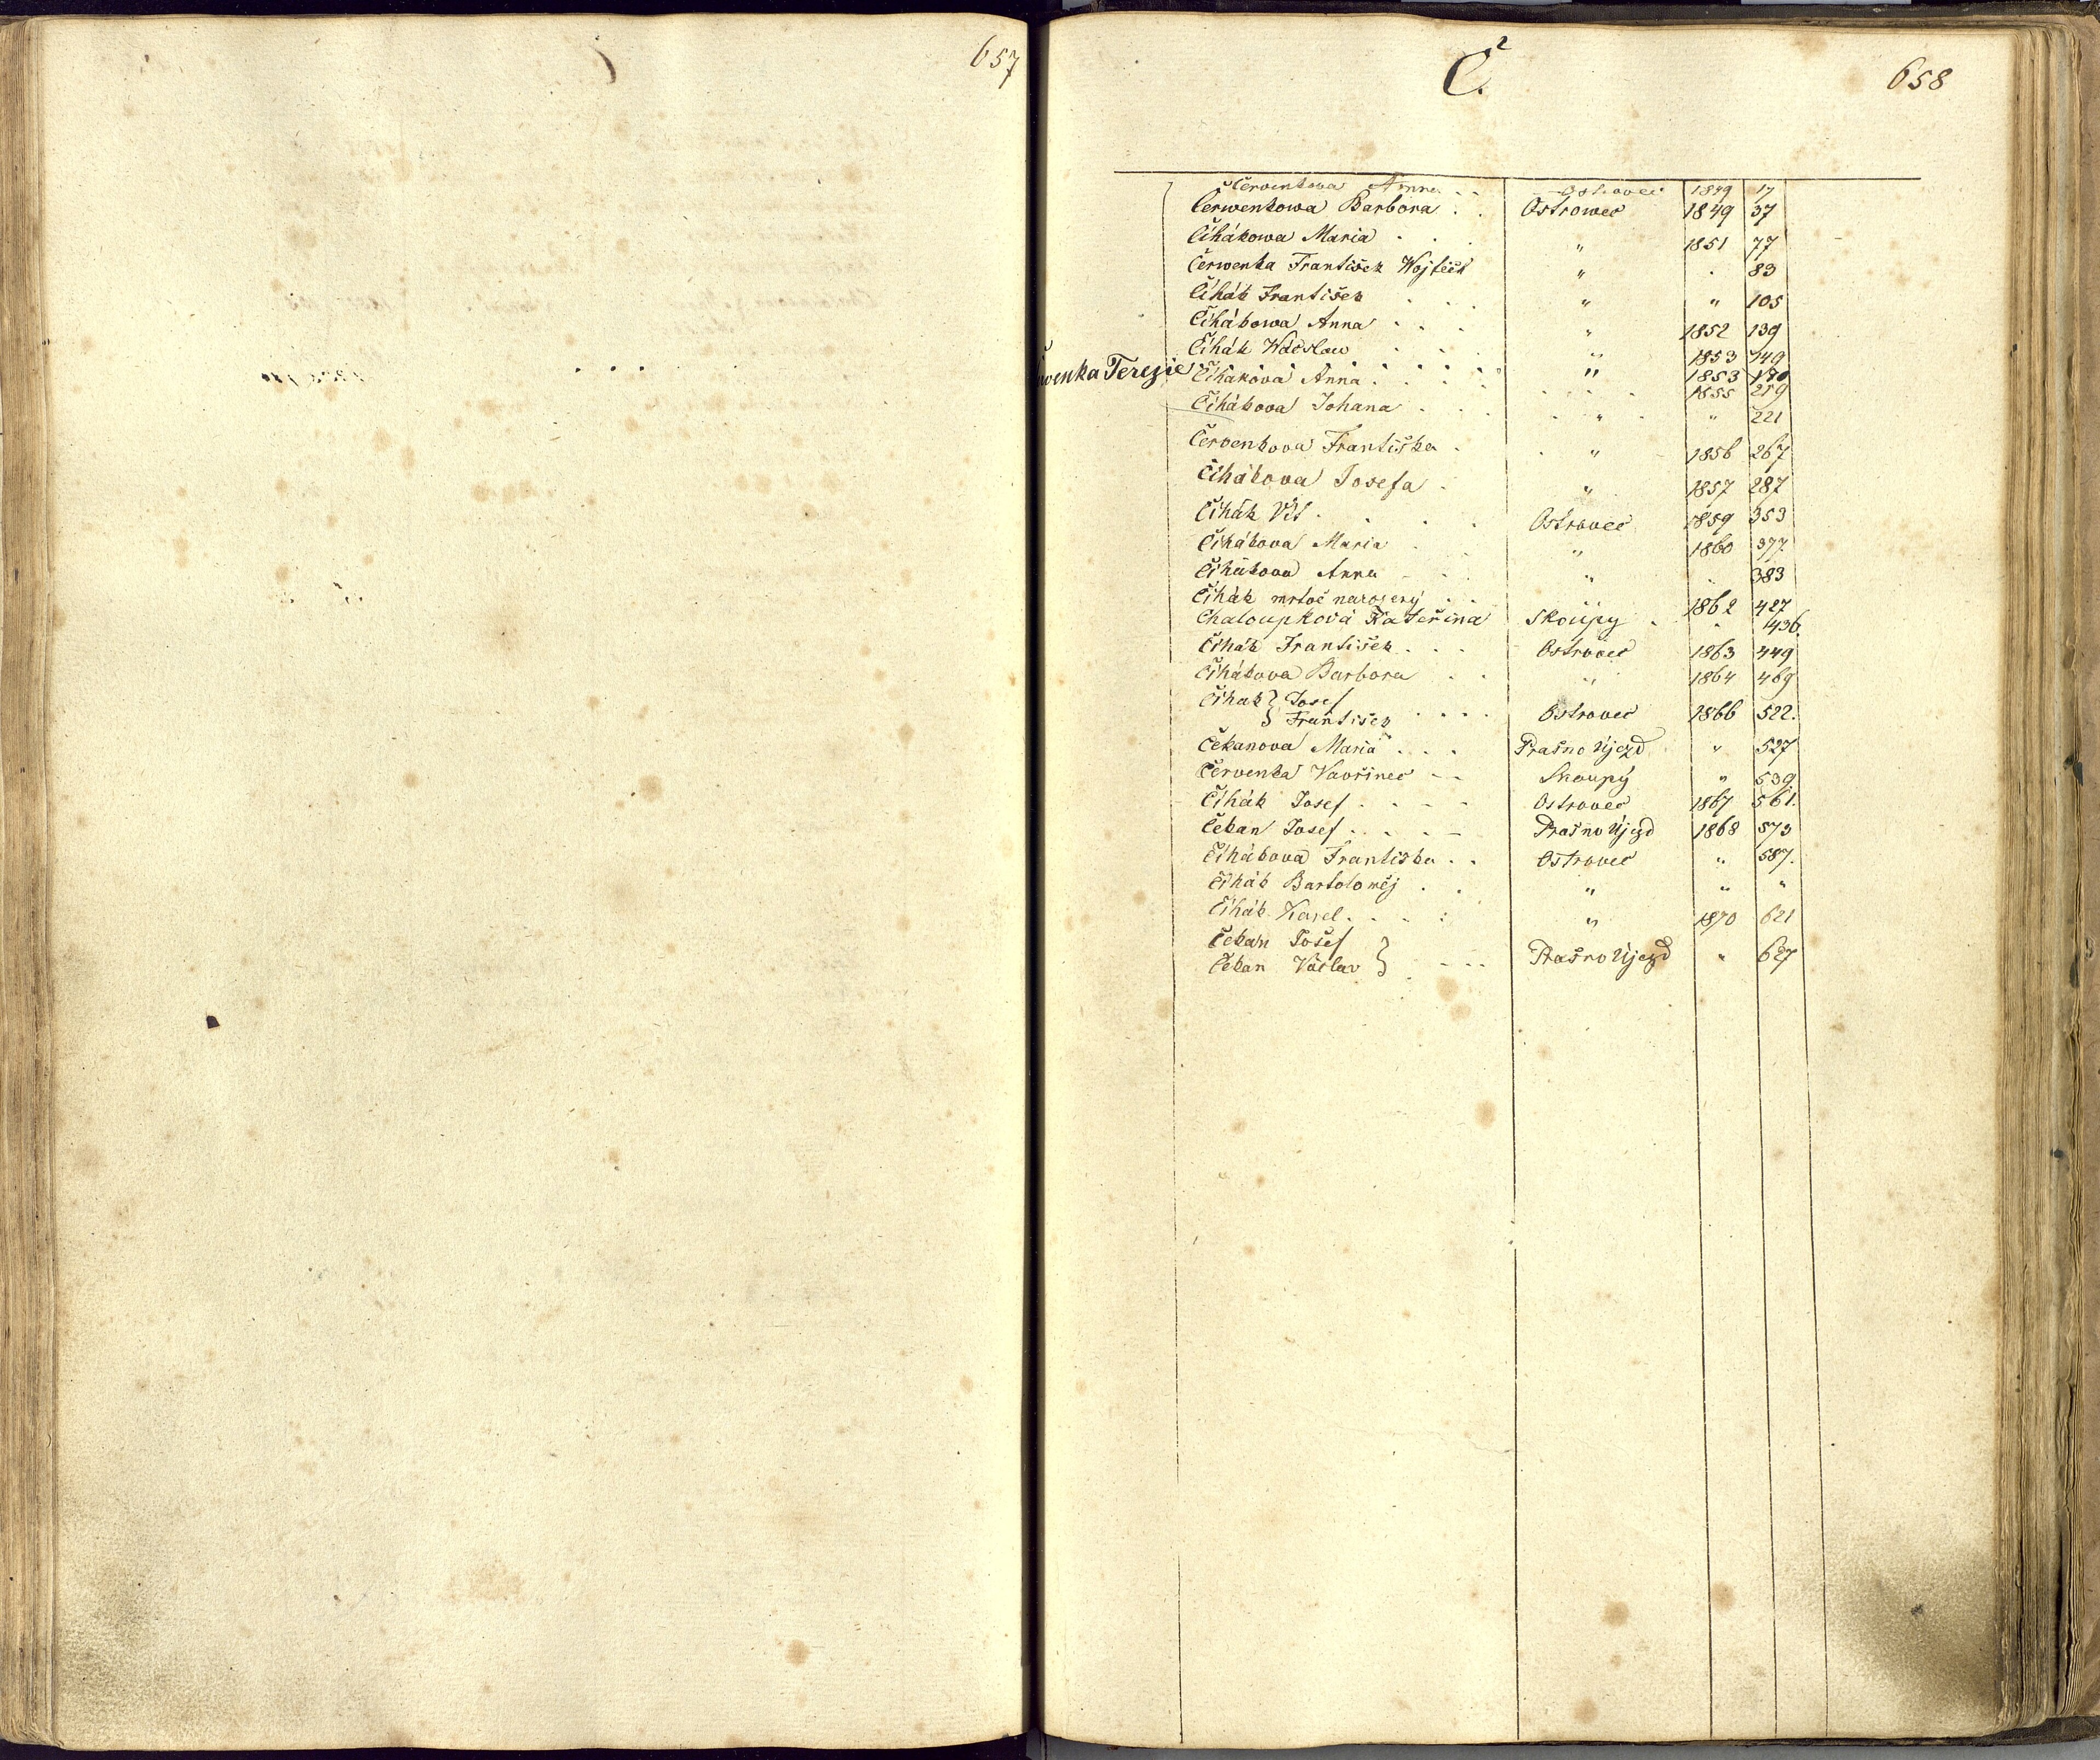 657
Č.
658
Červenkova Anna Ostrovec 1849 17
Čerwenkowa Barbora Ostrowec 1849 37
Čihákowa Maria " 1851 77
Čerwenka František Wojtěch " . 83
Čihák František " " 105
Čihákowa Anna " 1852 139
Čihák Wácslaw " 1853 149
wenka Terezie " 1853 170
Čihákova Anna 1855 219
Čihákova Johana " " 221
Červenkova Františka " 1856 267
Čihákova Josefa " 1857 287
Čihák Vít Ostrovec 1859 353
Čihákova Maria " 1860 377
Čihákova Anna " " 383
Čihák mrtvě narozený 1862 427
Chaloupková Kateřina Skoupý " 436.
Čihák František Ostrovec 1863 449
Čihákova Barbora " 1864 469
Čihák } Josef
} František Ostrovec 1866 522.
Čekanova Maria Prašno Újezd " 527
Červenka Vavřinec Skoupý " 539
Čihák Josef Ostrovec 1867 561.
Čekan Josef Prašno Újezd 1868 573
Čihákova Františka Ostrovec " 587.
Čihák Bartoloměj " " "
Čihák Karel " 1870 621
Čekan Josef }
Čekan Václav } Prašno Újezd " 627